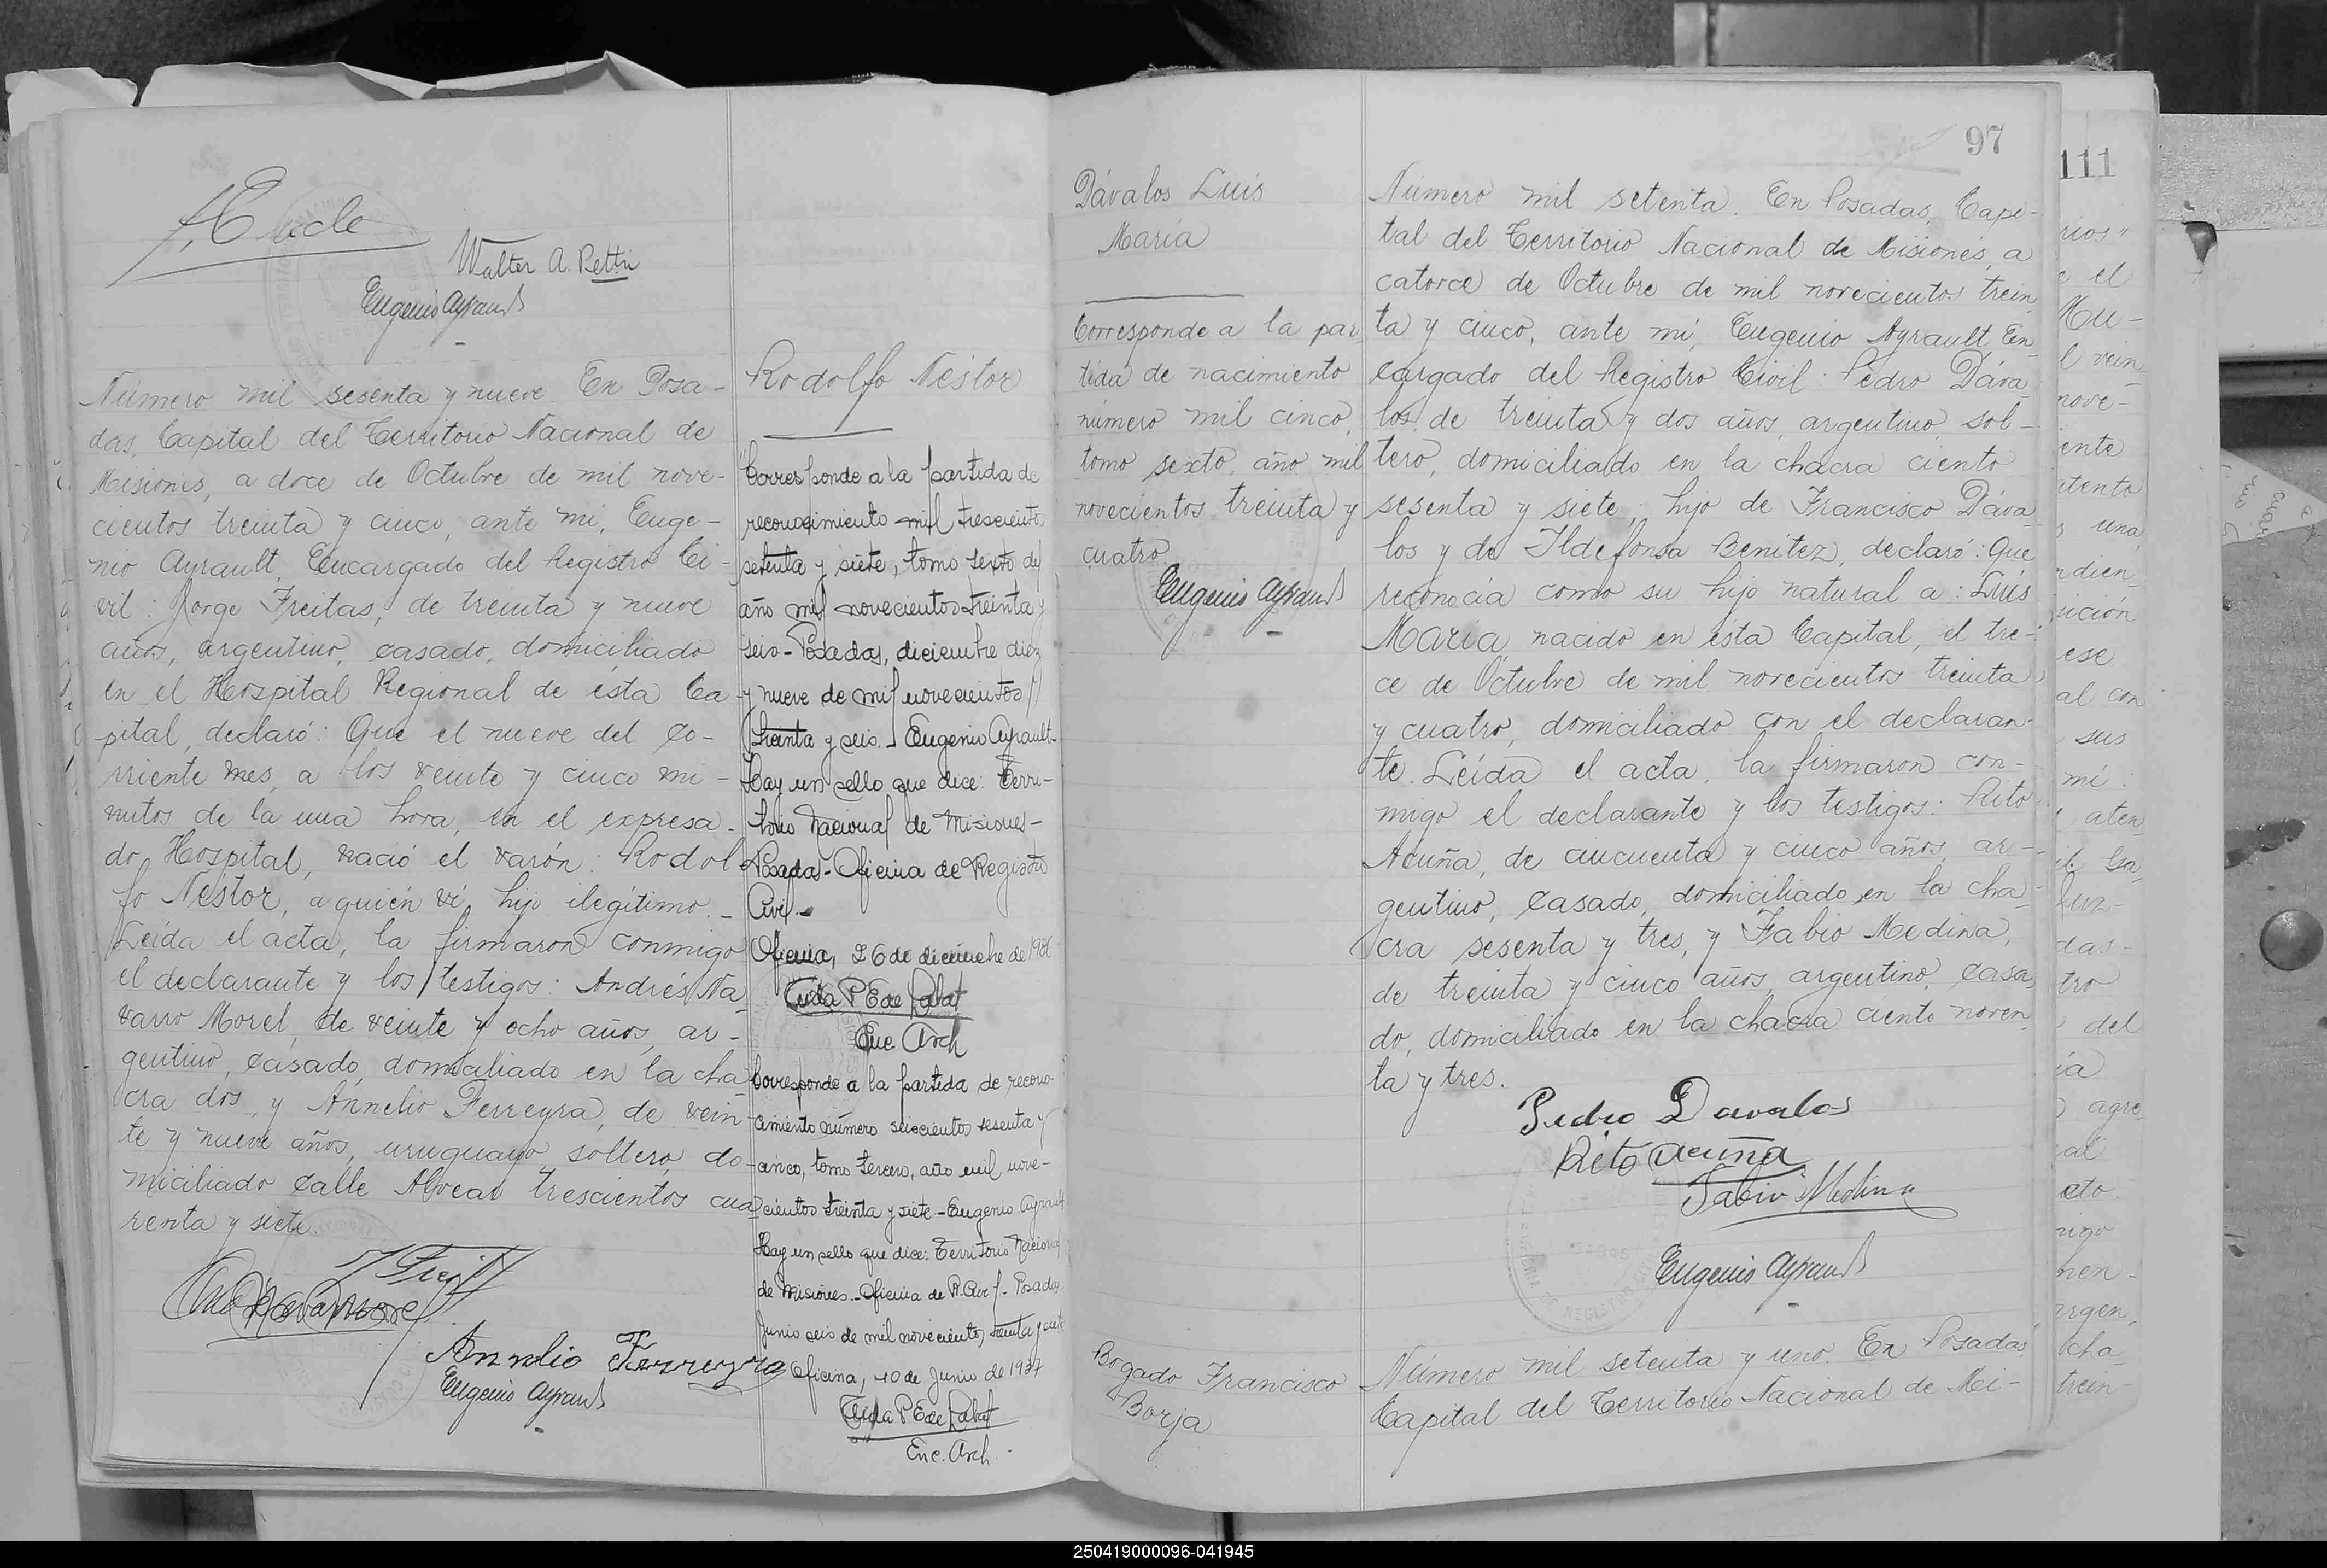 Walter A. Pettri
Eugenio Ayrault
Número mil sesenta y nueve. En Posa-
das, Capital del Territorio Nacional de
Misiones, a doce de Octubre de mil nove-
cientos treinta y cinco, ante mi, Euge-
nio Ayrault, Encargado del Registro Ci-
vil: Jorge Freitas, de treinta y nueve
años, argentino, casado, domiciliado
en el Hospital Regional de ésta Ca-
pital, declaró: Que el nueve del co-
rriente mes, a los veinte y cinco mi-
nutos de la una hora, en el expresa-
do Hospital, nació el varón: Rodol-
fo Néstor, a quién ví, hijo ilegítimo.-
Leída el acta, la firmaron conmigo
el declarante y los testigos: Andrés Na
varro Morel, de veinte y ocho años, ar-
gentino, casado, domiciliado en la cha
cra dos, y Annelio Ferreyra, de vein-
te y nueve años, uruguayo soltero, do-
miciliado calle Alvear trescientos cua
renta y siete.
Annelio Ferreyra
Eugenio Ayrault
Rodolfo Néstor
"Corresponde a la partida de
reconocimiento mil trescientos
setenta y siete, tomo sexto del
año mil novecientos treinta y
seis-Posadas, diciembre diez
y nueve de mil novecientos
treinta y seis.- Eugenio Ayrault-
Hay un sello que dice: Terri-
torio Nacional de Misiones-
Posadas-Oficina de Registro
Civil-
Oficina, 26 de diciembre de 1936
Enc. Arch
Corresponde a la partida de recono-
cimiento número seiscientos sesenta y
cinco, tomo tercero, año mil nove-
cientos treinta y siete-Eugenio Ayrault
Hay un sello que dice: Territorio Nacional
de Misiones.-Oficina de R. Civil- Posadas
Junio seis de mil novecientos treinta y siete
Oficina, 10 de Junio de 1937
Enc. Arch.
97
Dávalos Luis
María
Corresponde a la par
tida de nacimiento
número mil cinco,
tomo sexto, año mil
novecientos treinta y
cuatro.
Eugenio Ayrault
Número mil setenta. En Posadas, Capi-
tal del Territorio Nacional de Misiones, a
catorce de Octubre de mil novecientos trein
ta y cinco, ante mi, Eugenio Ayrault En
cargado del Registro Civil: Pedro Dáva
los, de treinta y dos años, argentino, sol-
tero, domiciliado en la chacra ciento
sesenta y siete, hijo de Francisco Dáva
los y de Ildefonsa Benítez, declaró: Que
reconocía como su hijo natural a: Luis
María, nacido en ésta Capital, el tre-
ce de Octubre de mil novecientos treinta
y cuatro, domiciliado con el declaran-
te. Leída el acta, la firmaron con-
migo el declarante y los testigos: Rito
Acuña, de cincuenta y cinco años, ar-
gentino, casado, domiciliado en la cha
cra sesenta y tres, y Fabio Medina,
de treinta y cinco años, argentino, casa
do, domiciliado en la chacra ciento noven
ta y tres.
Pedro Davalos
Rito Acuña
Fabio Medina
Eugenio Ayrault
Bogado Francisco
Borja
Número mil setenta y uno. En Posadas
Capital del Territorio Nacional de Mi-
111
250419000096-041945